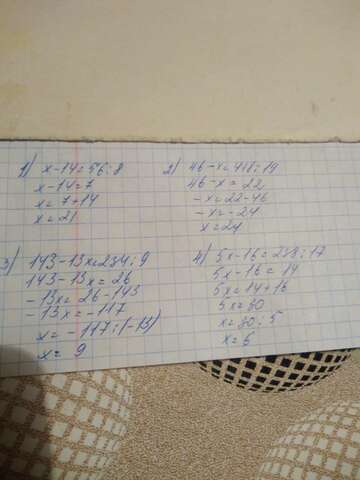 1) x-14=56:8
x-14=7
x=7+14
x=21
2) 46-x=418:19
46-x=22
-x=22-46
-x=-24
x=24
3) 143-13x=234:9
143-13x=26
-13x=26-143
-13x=-117
x=-117:(-13)
x=9
4) 5x-16=238:17
5x-16=14
5x=14+16
5x=30
x=30:5
x=6